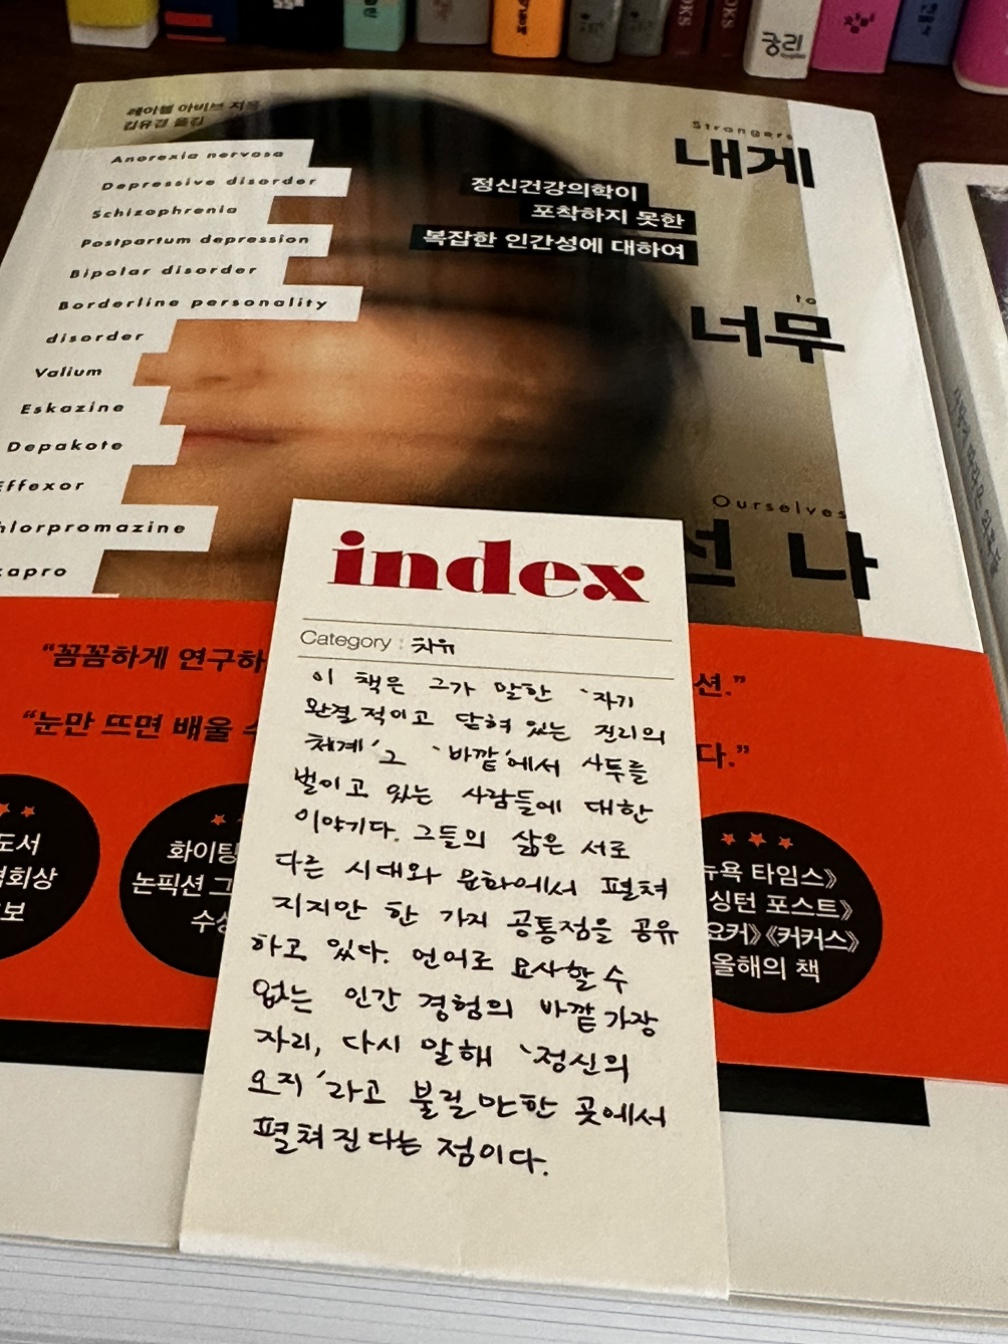 궁리
레이첼 아비브 지음
김유경 옮김
Anorexia nervosa
Depressive disorder
Schizophrenia
Postpartum depression
Bipolar disorder
Borderline personality
disorder
Valium
Eskazine
Depakote
Effexor
hlorpromazine
xapro
정신건강의학이
포착하지 못한
복잡한 인간성에 대하여
Strangers
내게
to
너무
Ourselves
선 나
"꼼꼼하게 연구하
션."
"눈만 뜨면 배울 수
다."
도서
협회상
보
화이팅
논픽션 그
수상
뉴욕 타임스》
싱턴 포스트》
요커》《커커스》
올해의 책
index
Category : 치유
이 책은 그가 말한 '자기
완결적이고 닫혀 있는 진리의
체계' 그 '바깥'에서 사투를
벌이고 있는 사람들에 대한
이야기다. 그들의 삶은 서로
다른 시대와 문화에서 펼쳐
지지만 한 가지 공통점을 공유
하고 있다. 언어로 묘사할 수
없는 인간 경험의 바깥 가장
자리, 다시 말해 '정신의
오지'라고 불릴 만한 곳에서
펼쳐진다는 점이다.